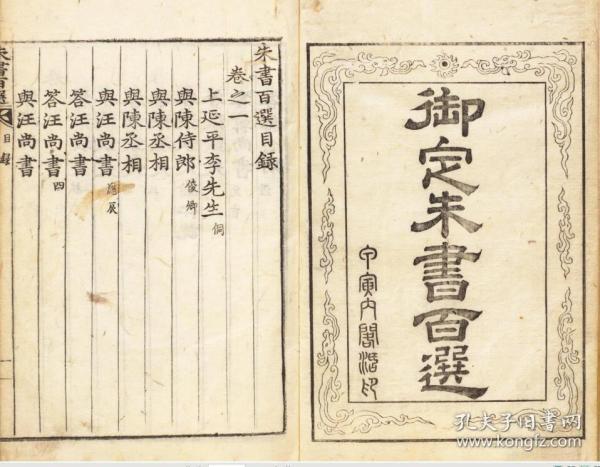 御定朱書百選
甲寅內閣活印
朱書百選目錄
卷之一
上延平李先生 侗
與陳侍郎 俊卿
與陳丞相
與陳丞相
與汪尚書 應辰
答汪尚書
答汪尚書 四
與汪尚書
朱書百選 目錄 一
孔夫子旧書网
www.kongfz.com